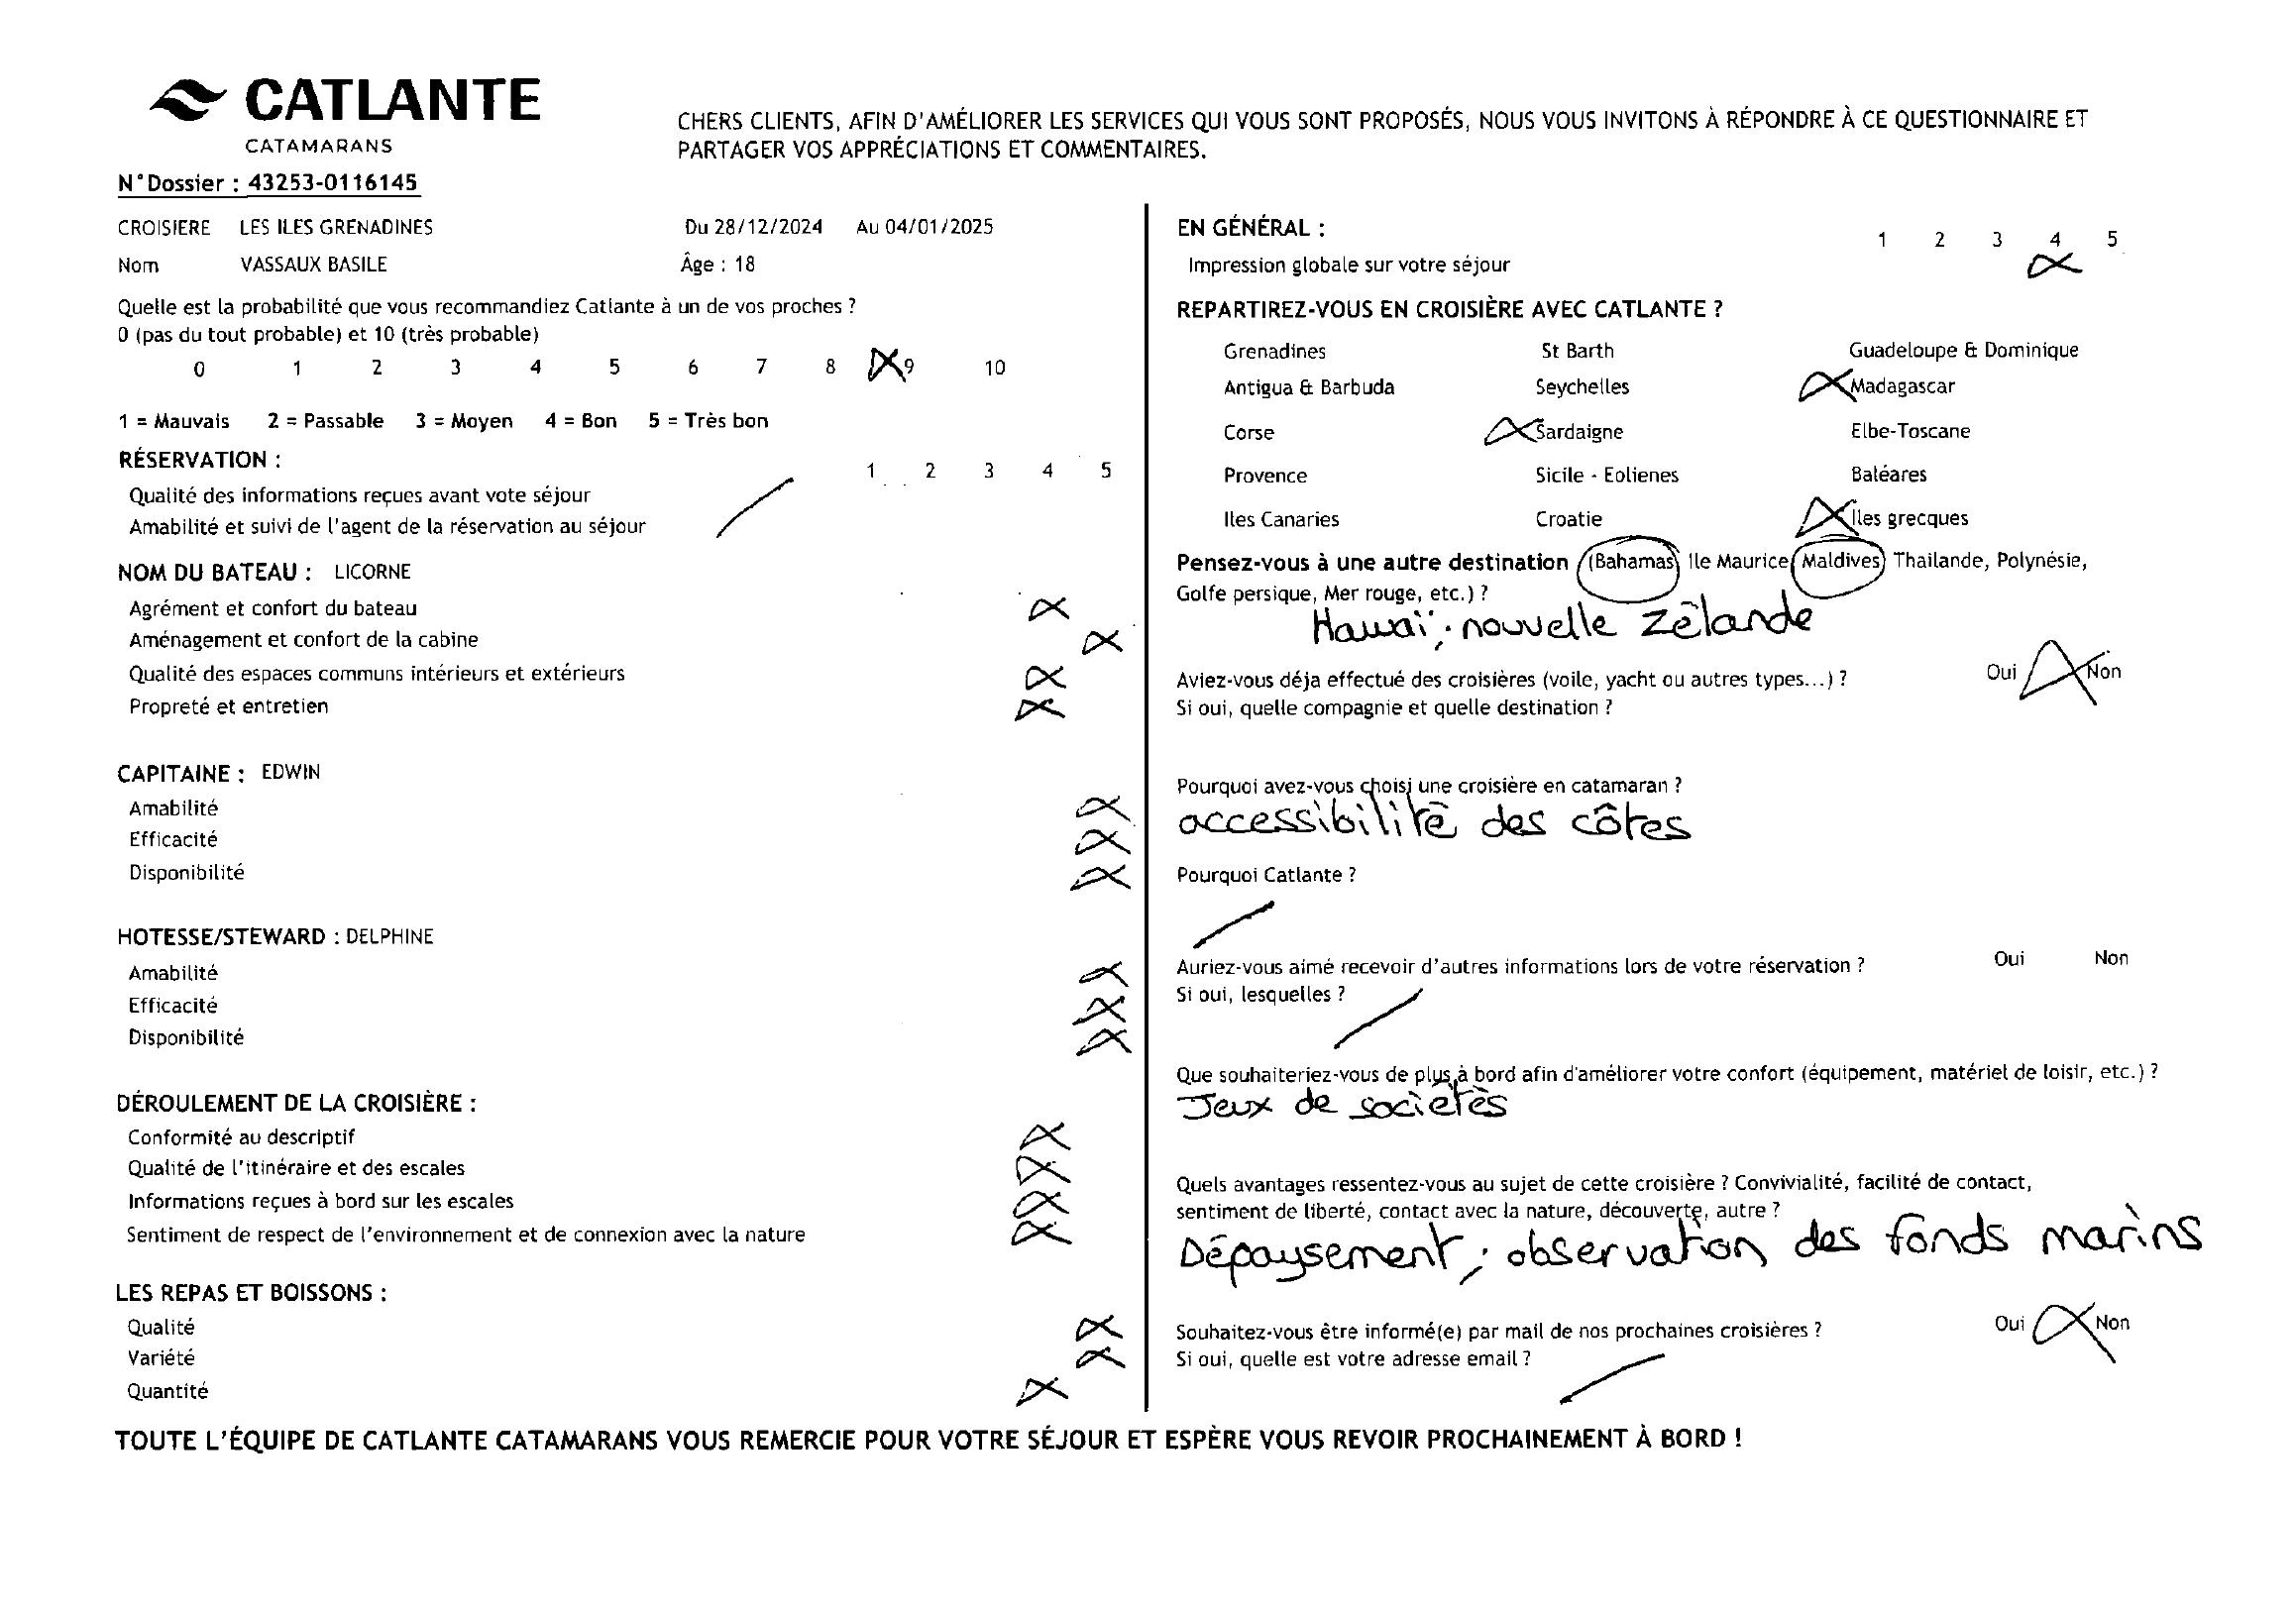 CATLANTE
CATAMARANS
CHERS CLIENTS, AFIN D'AMÉLIORER LES SERVICES QUI VOUS SONT PROPOSÉS, NOUS VOUS INVITONS À RÉPONDRE À CE QUESTIONNAIRE ET
PARTAGER VOS APPRÉCIATIONS ET COMMENTAIRES.
N°Dossier : 43253-0116145
CROISIERE LES ILES GRENADINES Du 28/12/2024 Au 04/01/2025
Nom VASSAUX BASILE Âge : 18
Quelle est la probabilité que vous recommandiez Catlante à un de vos proches ?
0 (pas du tout probable) et 10 (très probable)
0 1 2 3 4 5 6 7 8 9 10
1 = Mauvais 2 = Passable 3 = Moyen 4 = Bon 5 = Très bon
RÉSERVATION :
1 2 3 4 5
Qualité des informations reçues avant vote séjour
Amabilité et suivi de l'agent de la réservation au séjour
NOM DU BATEAU : LICORNE
Agrément et confort du bateau
Aménagement et confort de la cabine
Qualité des espaces communs intérieurs et extérieurs
Propreté et entretien
CAPITAINE : EDWIN
Amabilité
Efficacité
Disponibilité
HOTESSE/STEWARD : DELPHINE
Amabilité
Efficacité
Disponibilité
DÉROULEMENT DE LA CROISIÈRE :
Conformité au descriptif
Qualité de l'itinéraire et des escales
Informations reçues à bord sur les escales
Sentiment de respect de l'environnement et de connexion avec la nature
LES REPAS ET BOISSONS :
Qualité
Variété
Quantité
EN GÉNÉRAL :
1 2 3 4 5
Impression globale sur votre séjour
REPARTIREZ-VOUS EN CROISIÈRE AVEC CATLANTE ?
Grenadines St Barth Guadeloupe & Dominique
Antigua & Barbuda Seychelles Madagascar
Corse Sardaigne Elbe-Toscane
Provence Sicile - Eolienes Baléares
Iles Canaries Croatie Iles grecques
Pensez-vous à une autre destination (Bahamas, Ile Maurice, Maldives, Thailande, Polynésie,
Golfe persique, Mer rouge, etc.) ?
Hawaï ; nouvelle zélande
Aviez-vous déja effectué des croisières (voile, yacht ou autres types...) ? Oui Non
Si oui, quelle compagnie et quelle destination ?
Pourquoi avez-vous choisi une croisière en catamaran ?
accessibilité des côtes
Pourquoi Catlante ?
Auriez-vous aimé recevoir d'autres informations lors de votre réservation ? Oui Non
Si oui, lesquelles ?
Que souhaiteriez-vous de plus à bord afin d'améliorer votre confort (équipement, matériel de loisir, etc.) ?
Jeux de sociétés
Quels avantages ressentez-vous au sujet de cette croisière ? Convivialité, facilité de contact,
sentiment de liberté, contact avec la nature, découverte, autre ?
Dépaysement ; observation des fonds marins
Souhaitez-vous être informé(e) par mail de nos prochaines croisières ? Oui Non
Si oui, quelle est votre adresse email ?
TOUTE L'ÉQUIPE DE CATLANTE CATAMARANS VOUS REMERCIE POUR VOTRE SÉJOUR ET ESPÈRE VOUS REVOIR PROCHAINEMENT À BORD !